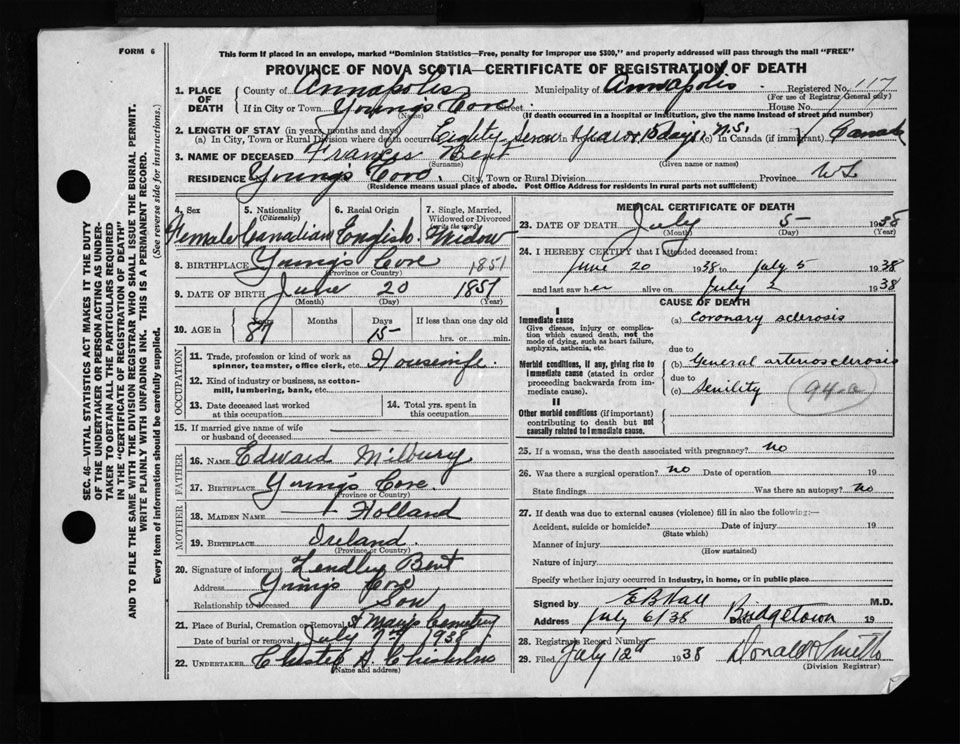 FORM 6
This form if placed in an envelope, marked "Dominion Statistics—Free, penalty for improper use $300," and properly addressed will pass through the mail "FREE"
PROVINCE OF NOVA SCOTIA—CERTIFICATE OF REGISTRATION OF DEATH
1. PLACE OF DEATH County of Annapolis Municipality of Annapolis Registered No. 117
(For use of Registrar General only)
If in City or Town Young's Cove Street House No.
(Name) (If death occurred in a hospital or institution, give the name instead of street and number)
2. LENGTH OF STAY (in years, months and days)
(a) In City, Town or Rural Division where death occurred Eighty seven years 15 days (c) In Canada (if immigrant) Canada
N.S.
3. NAME OF DECEASED Frances Bent
(Surname) (Given name or names)
RESIDENCE Youngs Cove. City, Town or Rural Division Province
(Residence means usual place of abode. Post Office Address for residents in rural parts not sufficient)
4. Sex 5. Nationality (Citizenship) 6. Racial Origin 7. Single, Married, Widowed or Divorced (write the word)
Female Canadian English Widow
8. BIRTHPLACE Youngs Cove 1851
(Province or Country)
9. DATE OF BIRTH June 20 1851
(Month) (Day) (Year)
10. AGE in Years Months Days If less than one day old
87 15 hrs. or min.
OCCUPATION
11. Trade, profession or kind of work as spinner, teamster, office clerk, etc. Housewife
12. Kind of industry or business, as cotton-mill, lumbering, bank, etc.
13. Date deceased last worked at this occupation
14. Total yrs. spent in this occupation
15. If married give name of wife or husband of deceased
FATHER
16. NAME Edward Milbury
17. BIRTHPLACE Youngs Cove.
(Province or Country)
MOTHER
18. MAIDEN NAME Holland
19. BIRTHPLACE Ireland.
(Province or Country)
20. Signature of informant Lendley Bent
Address Youngs Cove
Relationship to deceased Son
21. Place of Burial, Cremation or Removal St Mary's Cemetery
Date of burial or removal July 7th 1938
22. UNDERTAKER Chester A. Chisholm
(Name and address)
MEDICAL CERTIFICATE OF DEATH
23. DATE OF DEATH July 5 1938
(Month) (Day) (Year)
24. I HEREBY CERTIFY that I attended deceased from:
June 20 1938 to July 5 1938
and last saw her alive on July 2 1938
CAUSE OF DEATH
I
Immediate cause
Give disease, injury or complication which caused death, not the mode of dying, such as heart failure, asphyxia, asthenia, etc.
(a) Coronary sclerosis
due to
Morbid conditions, if any, giving rise to immediate cause (stated in order proceeding backwards from immediate cause).
(b) General arteriosclerosis
due to
(c) Senility 94-a
II
Other morbid conditions (if important) contributing to death but not causally related to immediate cause.
25. If a woman, was the death associated with pregnancy? no
26. Was there a surgical operation? no Date of operation 19
State findings Was there an autopsy? no
27. If death was due to external causes (violence) fill in also the following:—
Accident, suicide or homicide? Date of injury 19
(State which)
Manner of injury
(How sustained)
Nature of injury
Specify whether injury occurred in industry, in home, or in public place
Signed by M.D.
Address July 6/38 Bridgetown 19
28. Registrar's Record Number
29. Filed July 12th 1938 Donald Smith
(Division Registrar)
SEC. 46—VITAL STATISTICS ACT MAKES IT THE DUTY
OF THE UNDERTAKER OR PERSON ACTING AS UNDERTAKER
TO OBTAIN ALL THE PARTICULARS REQUIRED
IN THE "CERTIFICATE OF REGISTRATION OF DEATH"
AND TO FILE THE SAME WITH THE DIVISION REGISTRAR WHO SHALL ISSUE THE BURIAL PERMIT.
WRITE PLAINLY WITH UNFADING INK. THIS IS A PERMANENT RECORD.
Every item of information should be carefully supplied. (See reverse side for instructions.)